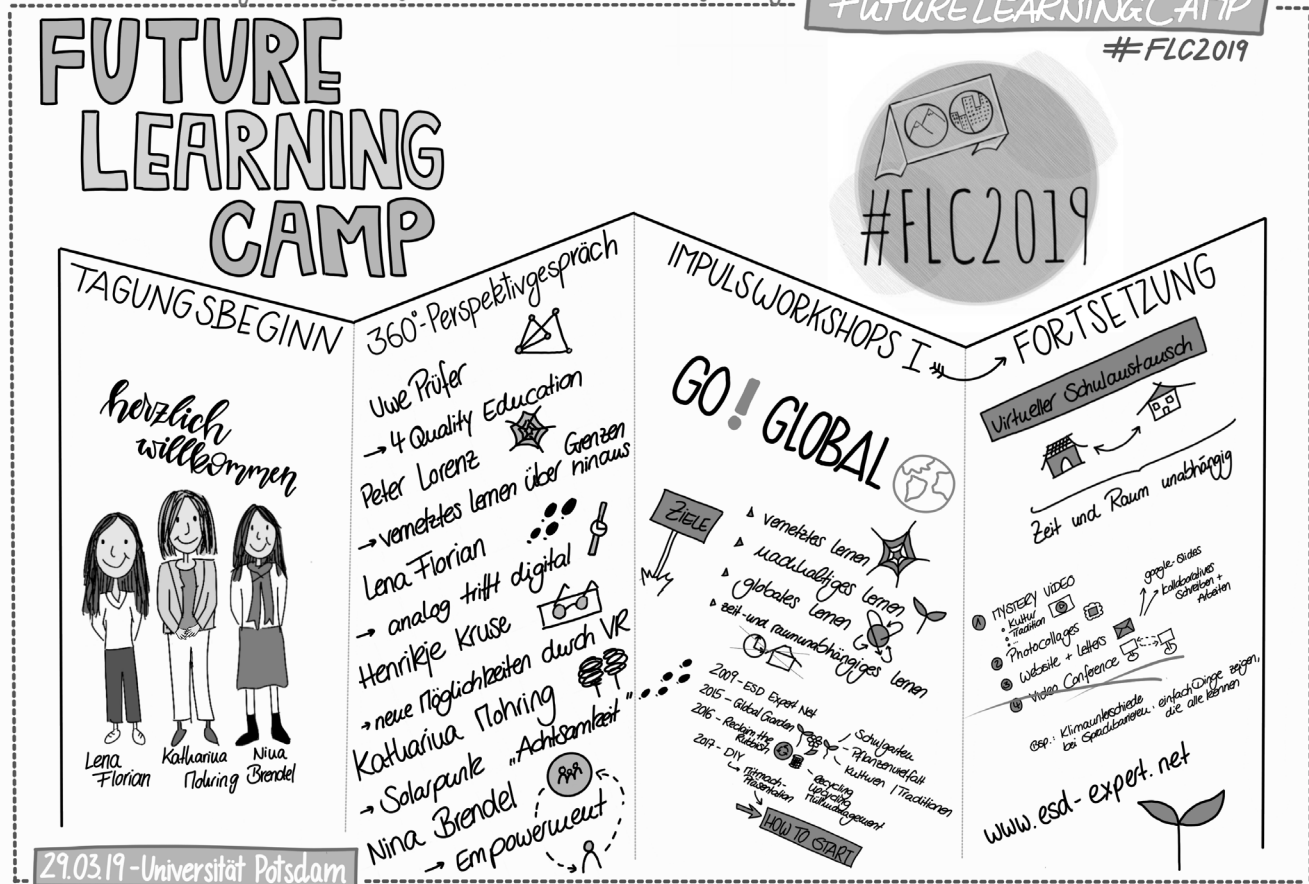 FUTURE LEARNING CAMP
#FLC2019
FUTURE
LEARNING
CAMP
#FLC2019
TAGUNGSBEGINN
herzlich
willkommen
Lena
Florian
Katharina
Mohring
Nina
Brendel
29.03.19-Universität Potsdam
360°-Perspektivgespräch
Uwe Prüfer
→ 4 Quality Education
Peter Lorenz
→ vernetztes lernen über Grenzen
hinaus
Lena Florian
→ analog trifft digital
Henrikje Kruse
→ neue Möglichkeiten durch VR
Katharina Mohring
→ Solarpunk „Achtsamkeit"
Nina Brendel
→ Empowerment
IMPULSWORKSHOPS I
GO! GLOBAL
ZIELE
vernetztes lernen
nachhaltiges lernen
globales lernen
zeit- und raumunabhängiges lernen
2009 - ESD Expert Net
2015 - Global Garden
2016 - Reclaim the
Rubbish
2017 - DIY
Schulgarten
Pflanzenvielfalt
Kulturen / Traditionen
Recycling
Upcycling
Müllmanagement
Mitmach-
Präsentation
HOW TO START
FORTSETZUNG
Virtueller Schulaustausch
Zeit und Raum unabhängig
1 MYSTERY VIDEO
Kultur
Tradition
...
2 Photocollages
3 Website + Letters
4 Video Conference
google-Slides
kollaboratives
Schreiben +
Arbeiten
Bsp.: Klimaunterschiede
bei Sprachbarrieren: einfach Dinge zeigen,
die alle kennen
www.esd-expert.net